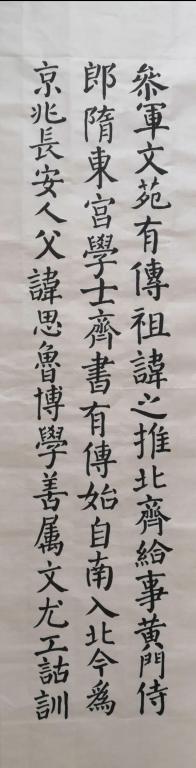 叅軍文苑有傳祖諱之推北齊給事黄門侍
郎隋東宫學士齊書有傳始自南入北今爲
京兆長安人父諱思魯博學善属文尤工詁訓